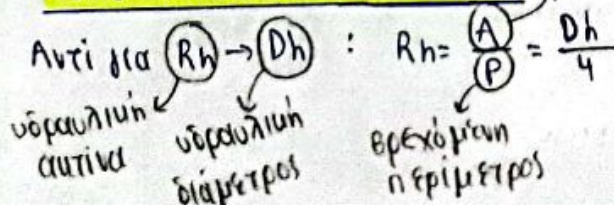 Αντί για Rh → Dh : Rh = A/P = Dh/4
υδραυλική ακτίνα
υδραυλική διάμετρος
βρεχόμενη περίμετρος